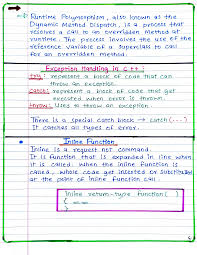 Runtime Polymorphism, also known as the
Dynamic Method Dispatch, is a process that
resolves a call to an overridden method at
runtime. The process involves the use of the
reference variable of a superclass to call
for an overridden method.
Exception Handling in C++:
try: represent a block of code that can
throw an exception.
catch: represent a block of code that get
executed when error is thrown.
throw: Used to throw an exception.
There is a special catch block → catch(...)
It catches all types of error.
Inline Function
Inline is a request not command.
It is function that is expanded in line when
it is called. When the inline function is
called, whole code get inserted or substituted
at the point of inline function call.
inline return-type function()
{